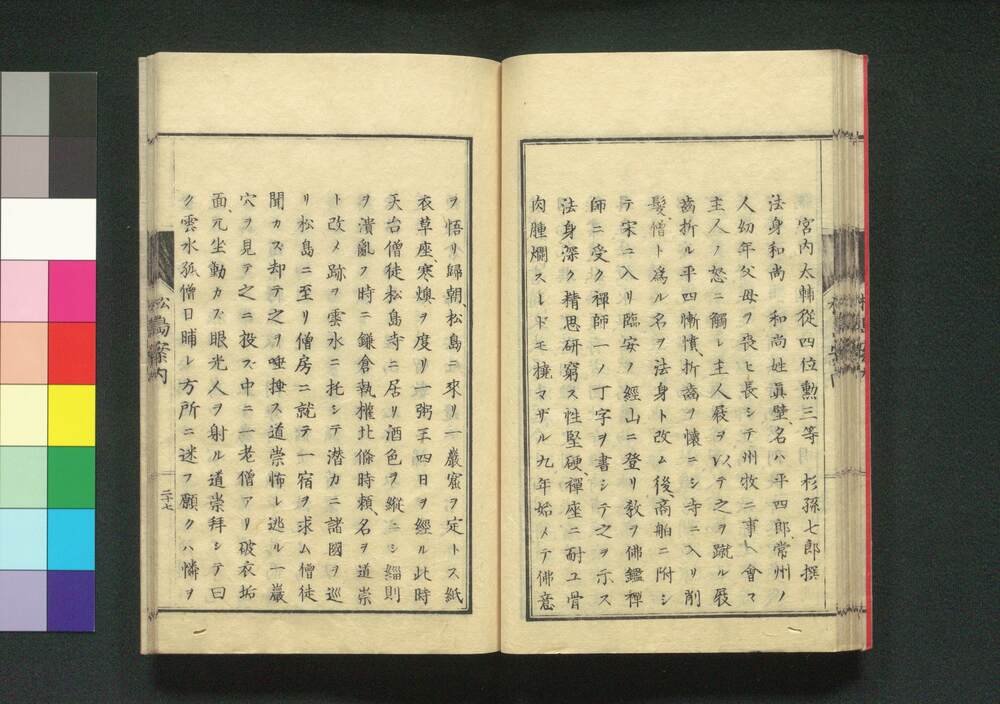 宮内太輔從四位勲三等 杉孫七郎撰
法身和尚 和尚姓眞壁、名ハ平四郎、常州ノ
人幼年父母ヲ喪ヒ長シテ州牧ニ事ヘ會マ
主人ノ怒ニ觸レ主人屐ヲ以テ之ヲ蹴ル屐
齒折ル平四慚憤、折齒ヲ懐ニシ寺ニ入リ削
髮、僧ト爲ル名ヲ法身ト改ム後、商舶ニ附シ
テ宋ニ入リ臨安ノ經山ニ登リ教ヲ佛鑑禪
師ニ受ク禪師一ノ丁字ヲ書シテ之ヲ示ス
法身深ク精思研窮ス性堅硬、禪座ニ耐ユ骨
肉腫爛スレドモ撓マザル九年始メテ佛意
ヲ悟リ歸朝、松島ニ來リ一巖窟ヲ定トス紙
衣草座、寒燠ヲ度リ一粥三四日ヲ經ル此時
天台僧徒松島寺ニ居リ酒色ヲ縱ニシ緇則
ヲ潰亂ス時ニ鎌倉執權北條時頼、名ヲ道崇
ト改メ跡ヲ雲水ニ托シテ潜カニ諸國ヲ巡
リ松島ニ至リ僧房ニ就テ一宿ヲ求ム僧徒
聞カズ却テ之ヲ唾捶ス道崇怖レ逃ル一巖
穴ヲ見テ之ニ投ズ中ニ一老僧アリ破衣垢
面、兀坐動カズ眼光人ヲ射ル道崇拜シテ曰
ク雲水孤僧日晡レ方所ニ迷フ願クハ憐ヲ
松島案内
二十七